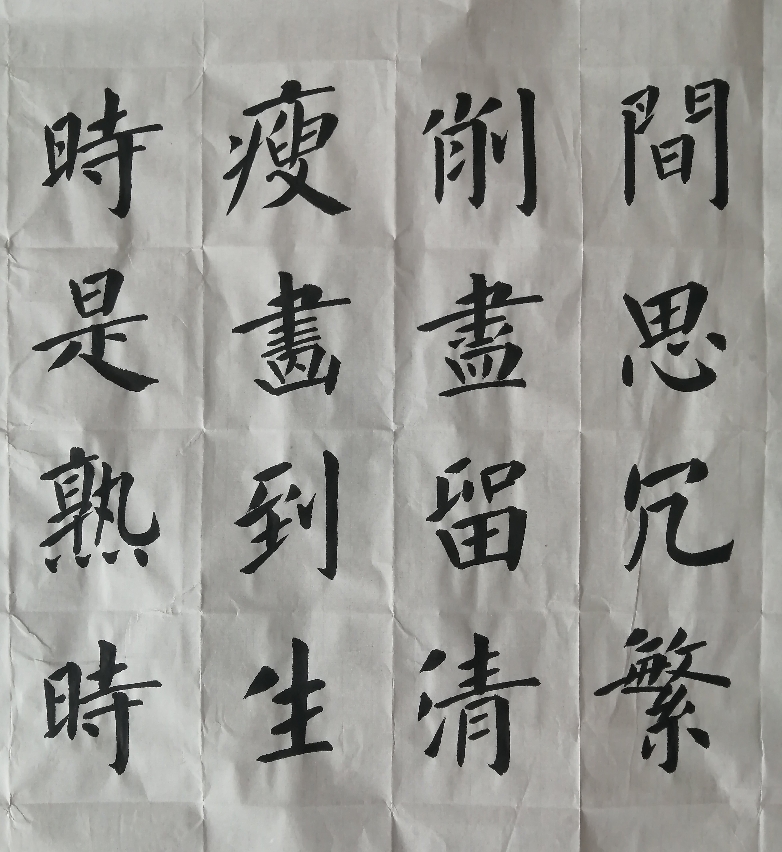 間思冗繁
削盡留清
瘦畵到生
時是熟時